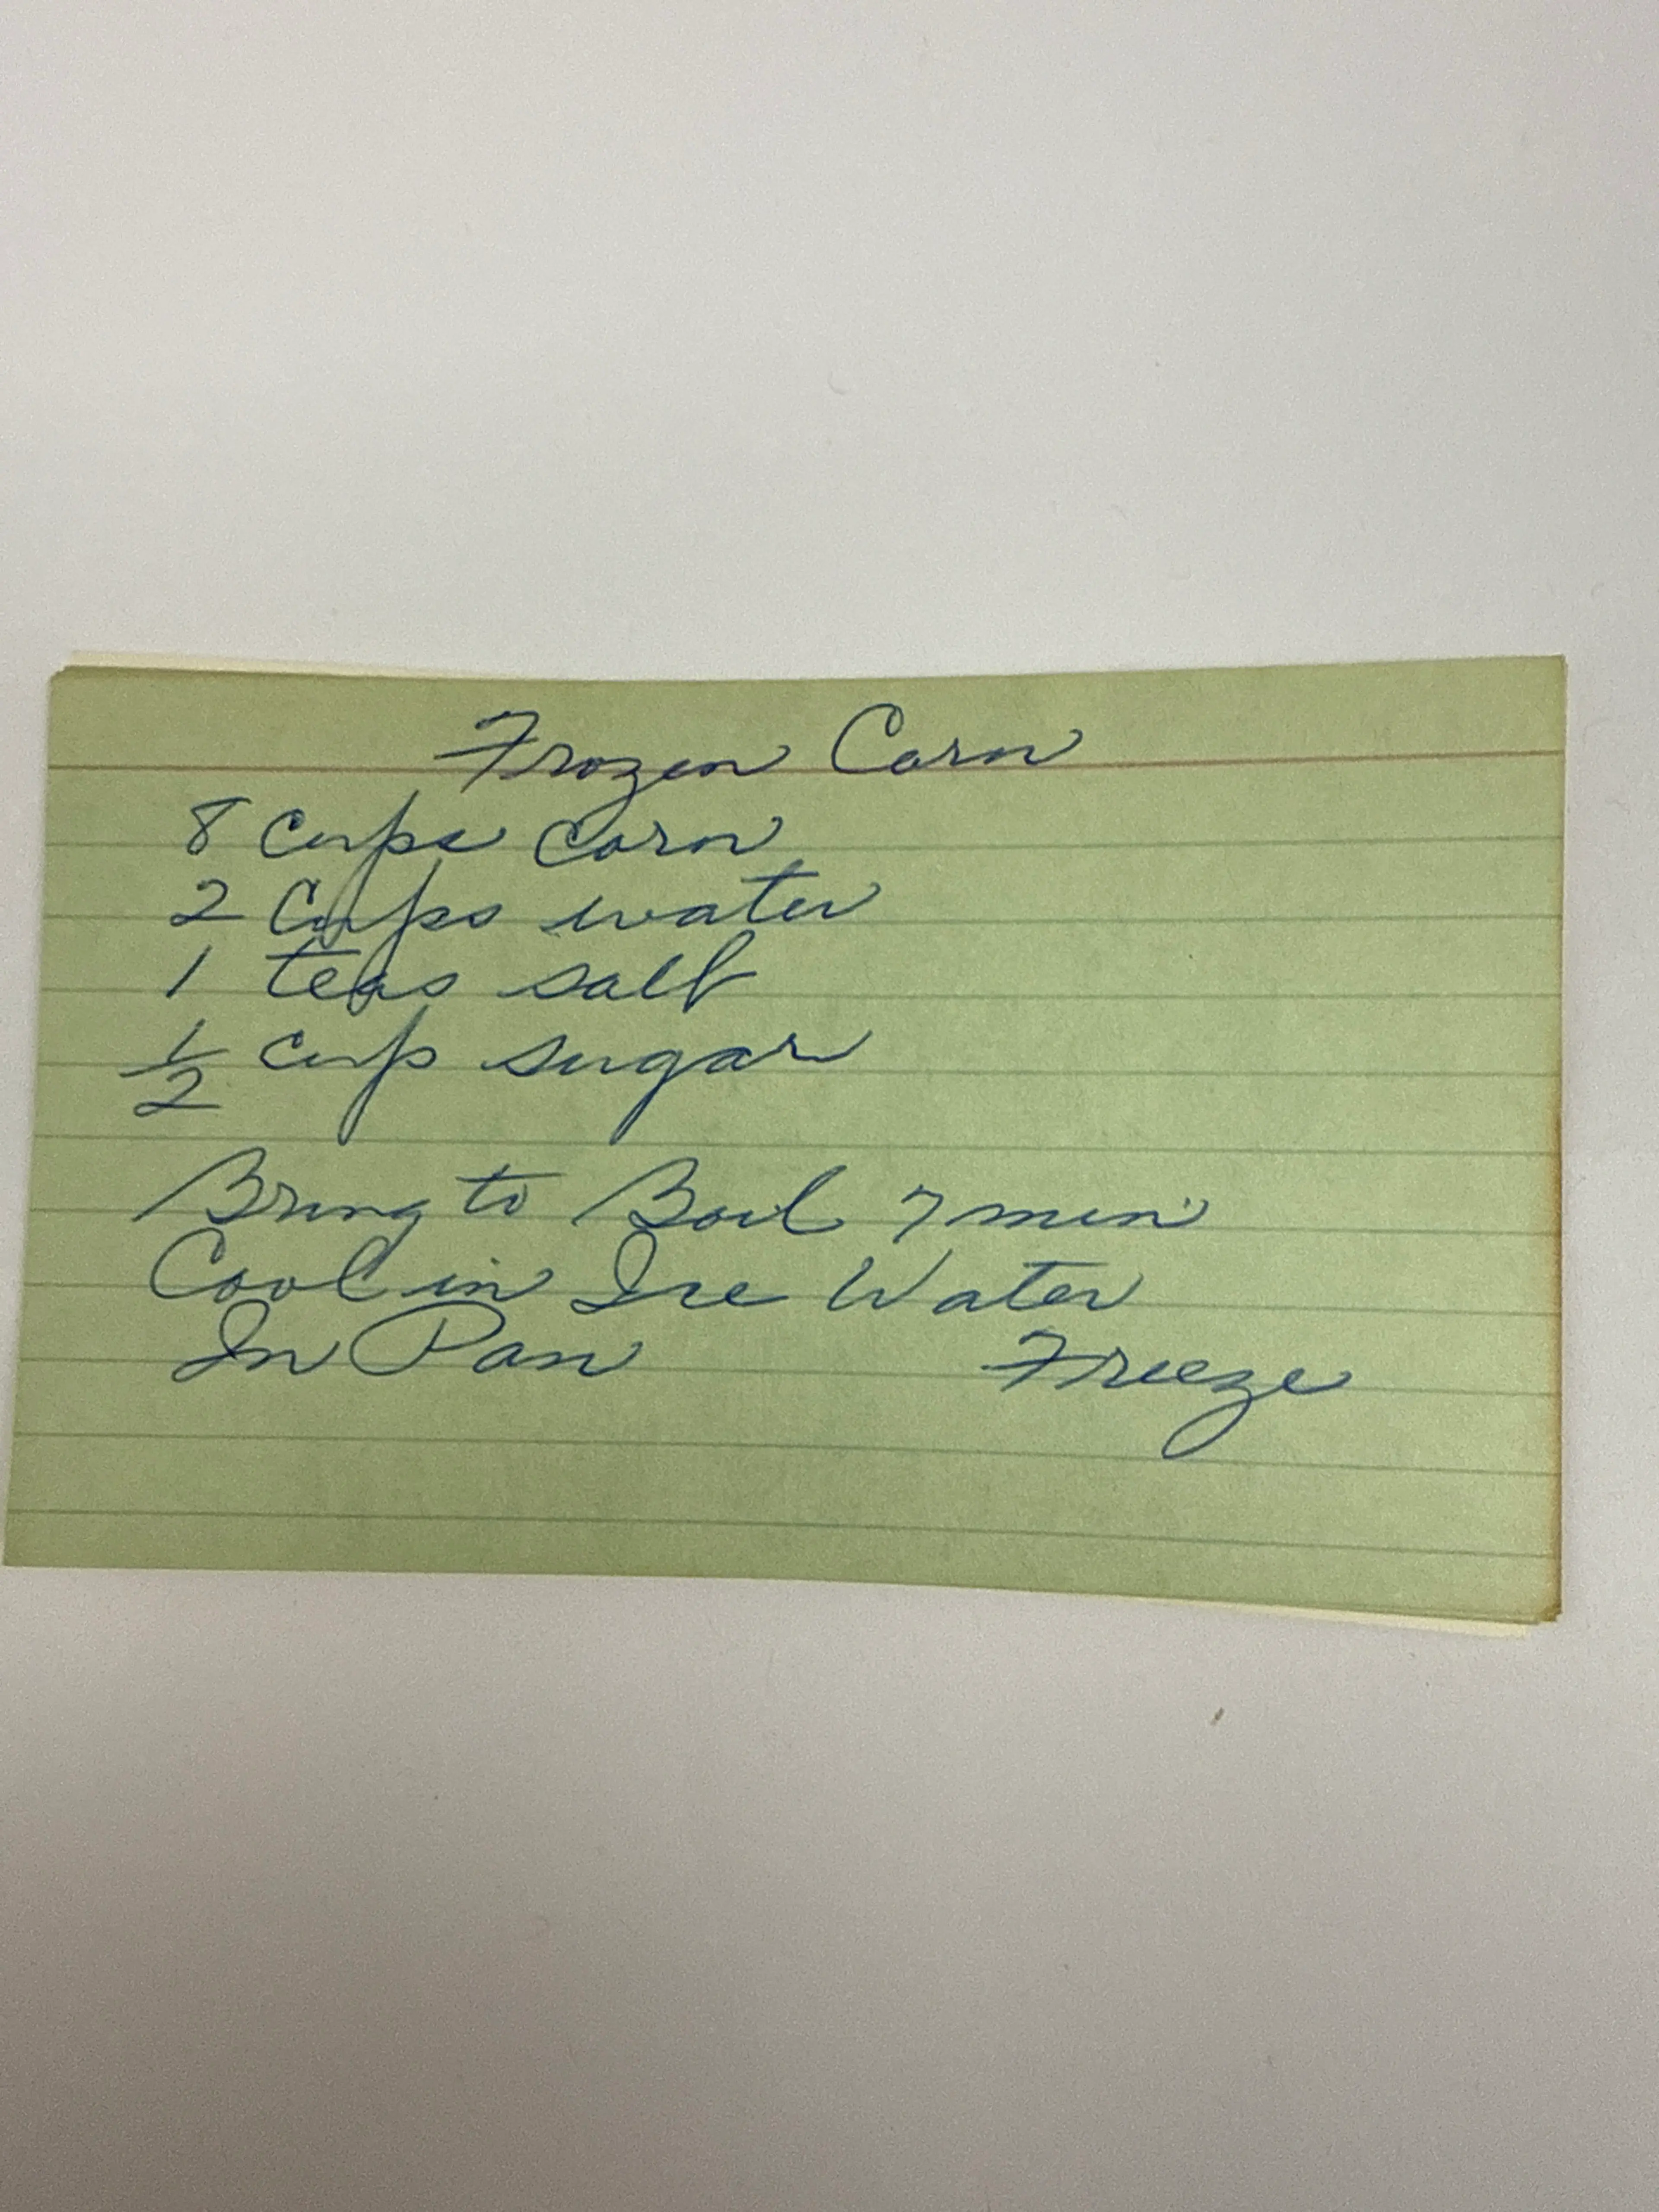 Frozen Corn
8 Cups Corn
2 Cups water
1 teas salt
1/2 cup sugar
Bring to Boil 7 min
Cool in Ice Water
In Pan Freeze